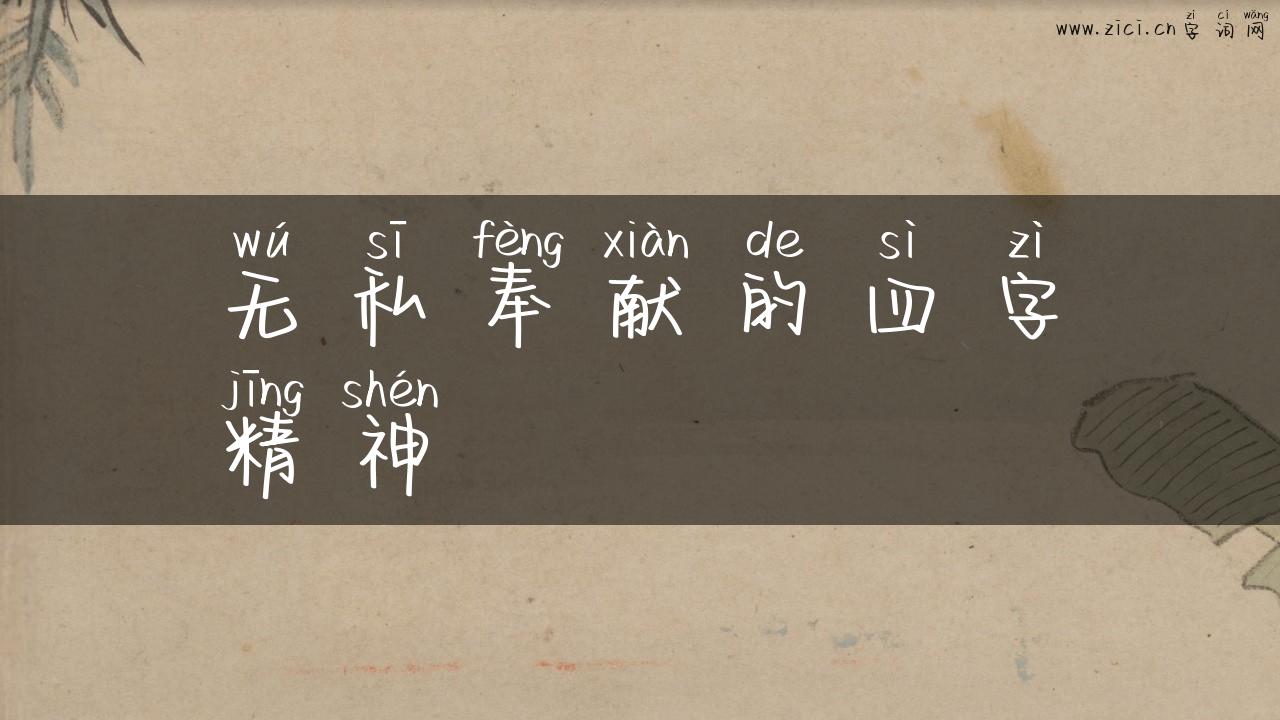 zì cí wǎng
www.zici.cn 字 词 网
wú sī fèng xiàn de sì zì
无 私 奉 献 的 四 字
jīng shén
精 神